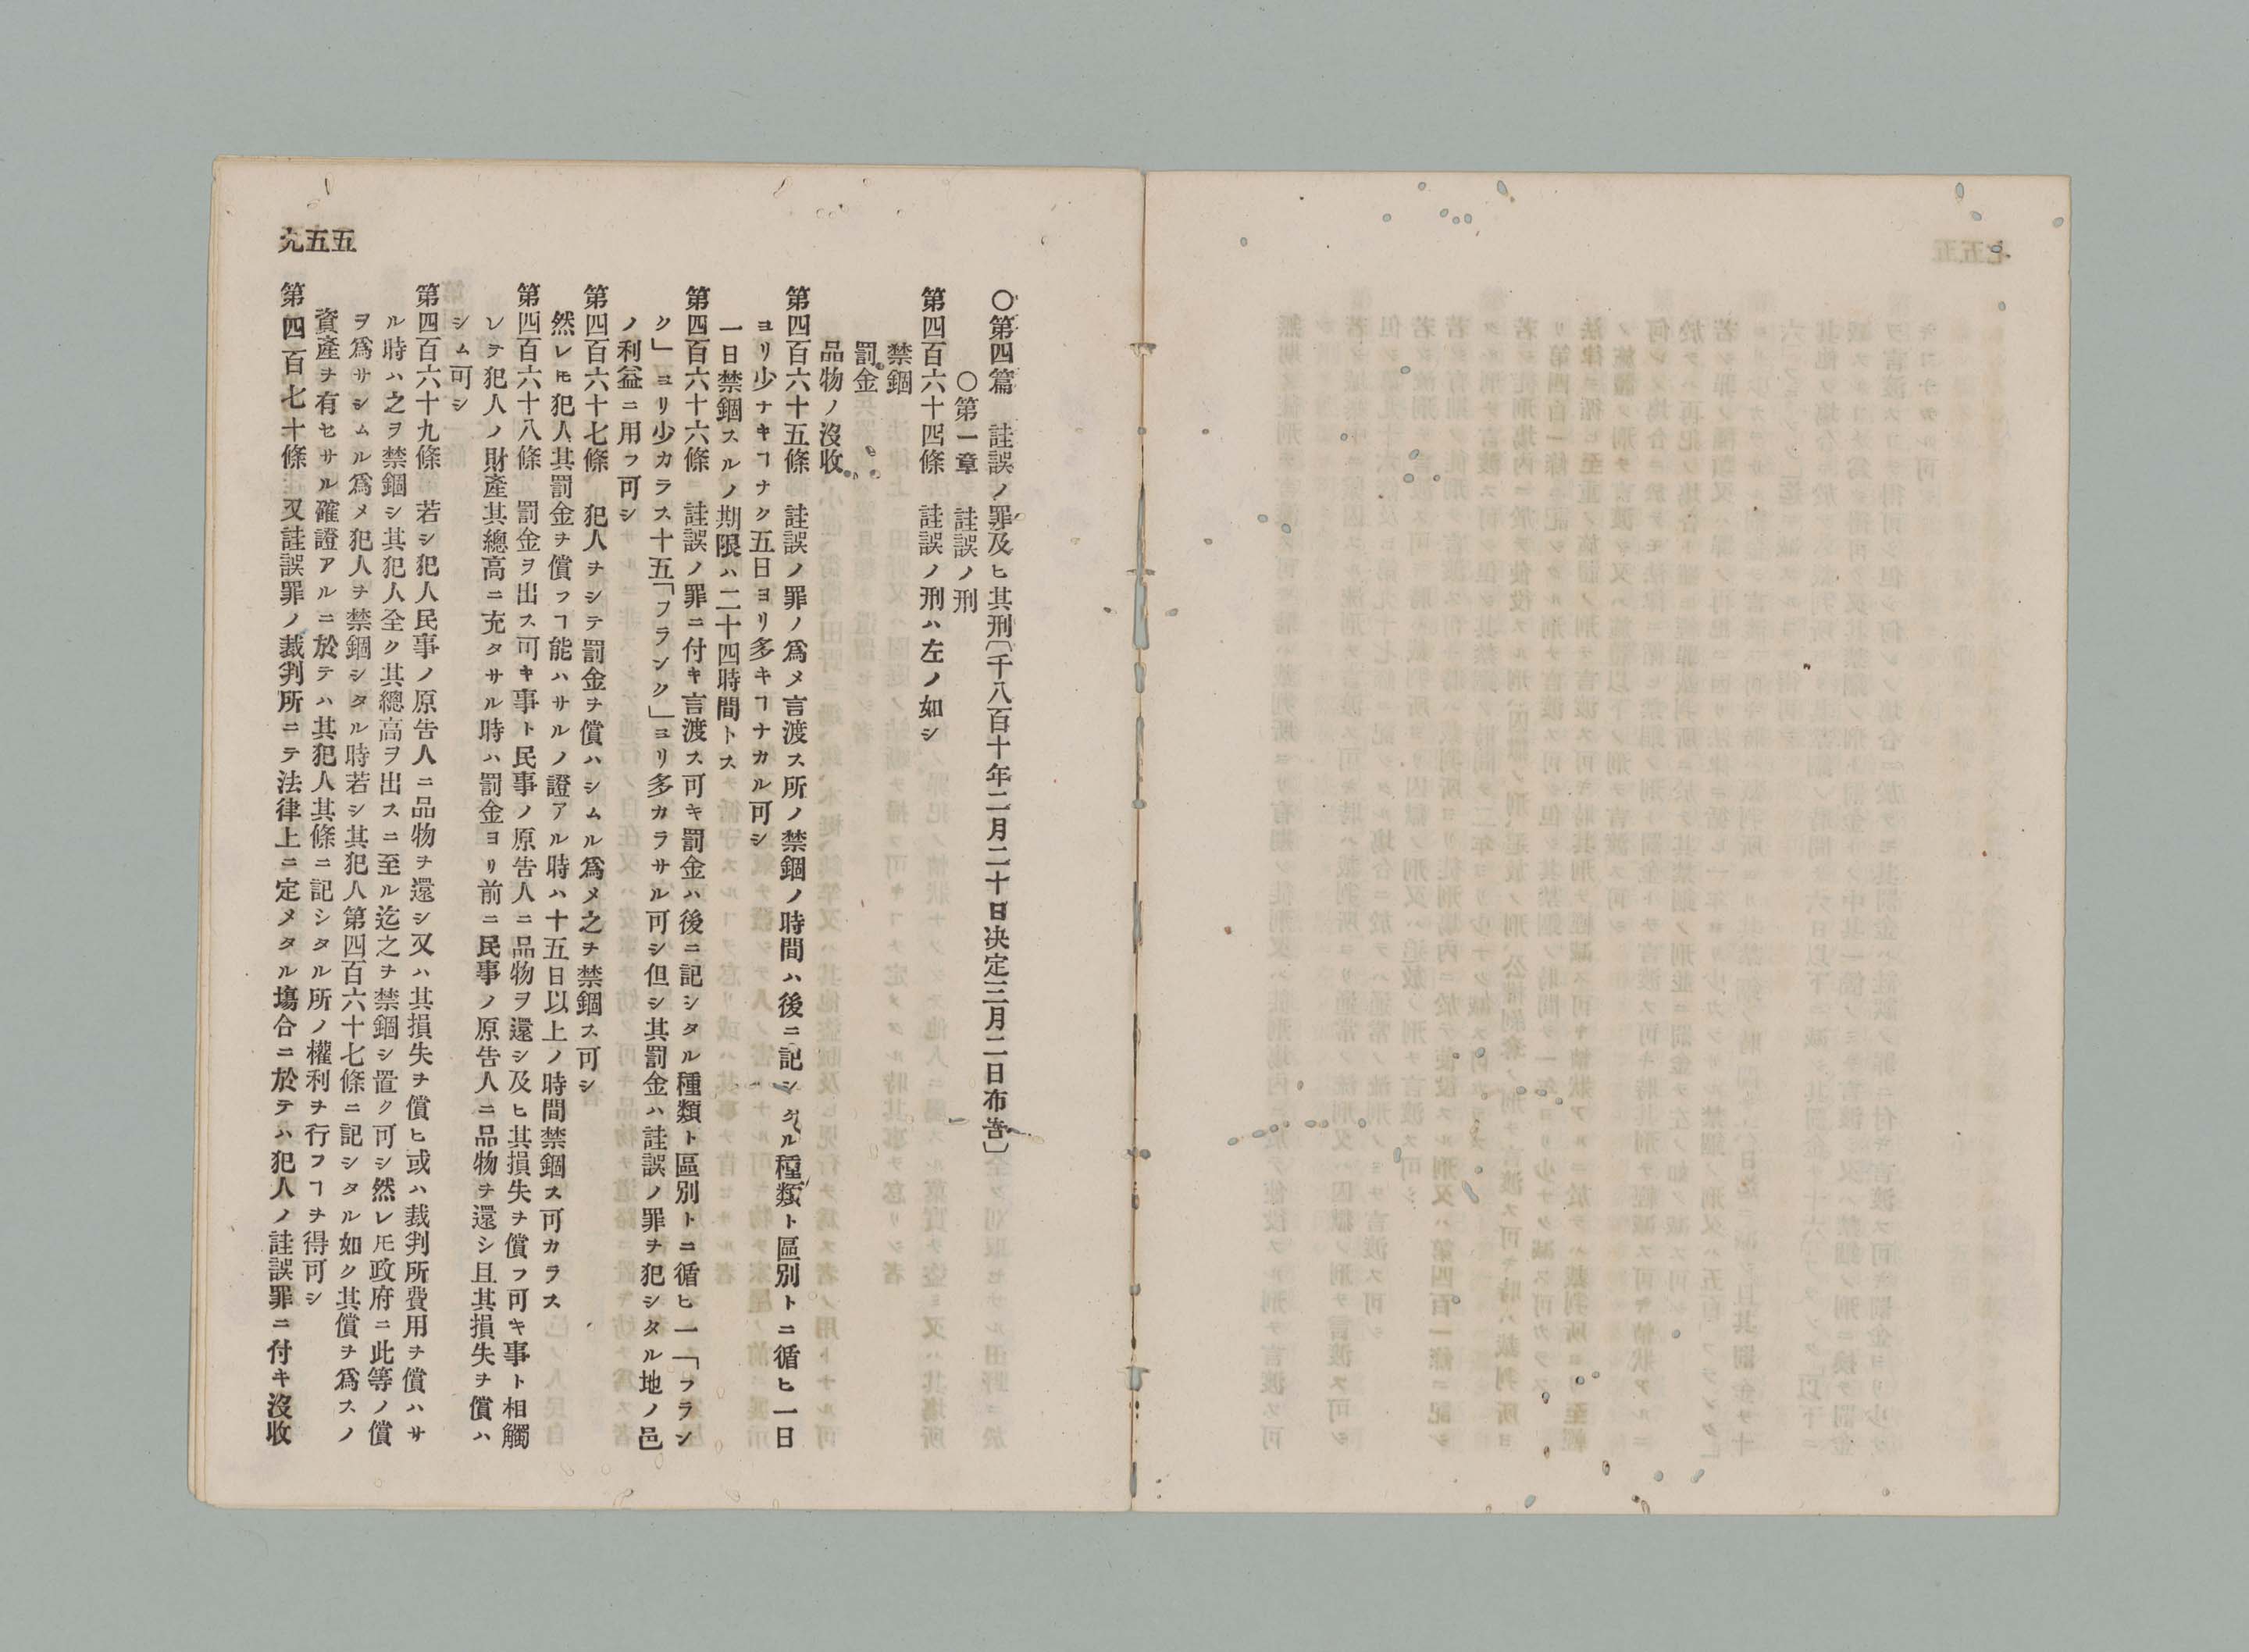 〇第四篇　註誤ノ罪及ヒ其刑〔千八百十年二月二十日決定三月二日布吿〕
〇第一章　註誤ノ刑
第四百六十四條　註誤ノ刑ハ左ノ如シ
禁錮
罰金
品物ノ沒收
第四百六十五條　註誤ノ罪ノ爲メ言渡ス所ノ禁錮ノ時間ハ後ニ記シタル種類ト區別トニ循ヒ一日
ヨリ少ナキヿナク五日ヨリ多キヿナカル可シ
一日禁錮スルノ期限ハ二十四時間トス
第四百六十六條　註誤ノ罪ニ付キ言渡ス可キ罰金ハ後ニ記シタル種類ト區別トニ循ヒ一「フラン
ク」ヨリ少カラス十五「フランク」ヨリ多カラサル可シ但シ其罰金ハ註誤ノ罪ヲ犯シタル地ノ邑
ノ利益ニ用フ可シ
第四百六十七條　犯人ヲシテ罰金ヲ償ハシムル爲メ之ヲ禁錮ス可シ
然レ𪜈犯人其罰金ヲ償フヿ能ハサルノ證アル時ハ十五日以上ノ時間禁錮ス可カラス
第四百六十八條　罰金ヲ出ス可キ事ト民事ノ原告人ニ品物ヲ還シ及ヒ其損失ヲ償フ可キ事ト相觸
レテ犯人ノ財產其總高ニ充タサル時ハ罰金ヨリ前ニ民事ノ原告人ニ品物ヲ還シ且其損失ヲ償ハ
シム可シ
第四百六十九條　若シ犯人民事ノ原告人ニ品物ヲ還シ又ハ其損失ヲ償ヒ或ハ裁判所費用ヲ償ハサ
ル時ハ之ヲ禁錮シ其犯人全ク其總高ヲ出スニ至ル迄之ヲ禁錮シ置ク可シ然レ𪜈政府ニ此等ノ償
ヲ爲サシムル爲メ犯人ヲ禁錮シタル時若シ其犯人第四百六十七條ニ記シタル如ク其償ヲ爲スノ
資產ヲ有セサル確證アルニ於テハ其犯人其條ニ記シタル所ノ權利ヲ行フヿヲ得可シ
第四百七十條　又註誤罪ノ裁判所ニテ法律上ニ定メタル塲合ニ於テハ犯人ノ註誤罪ニ付キ沒收
五五九